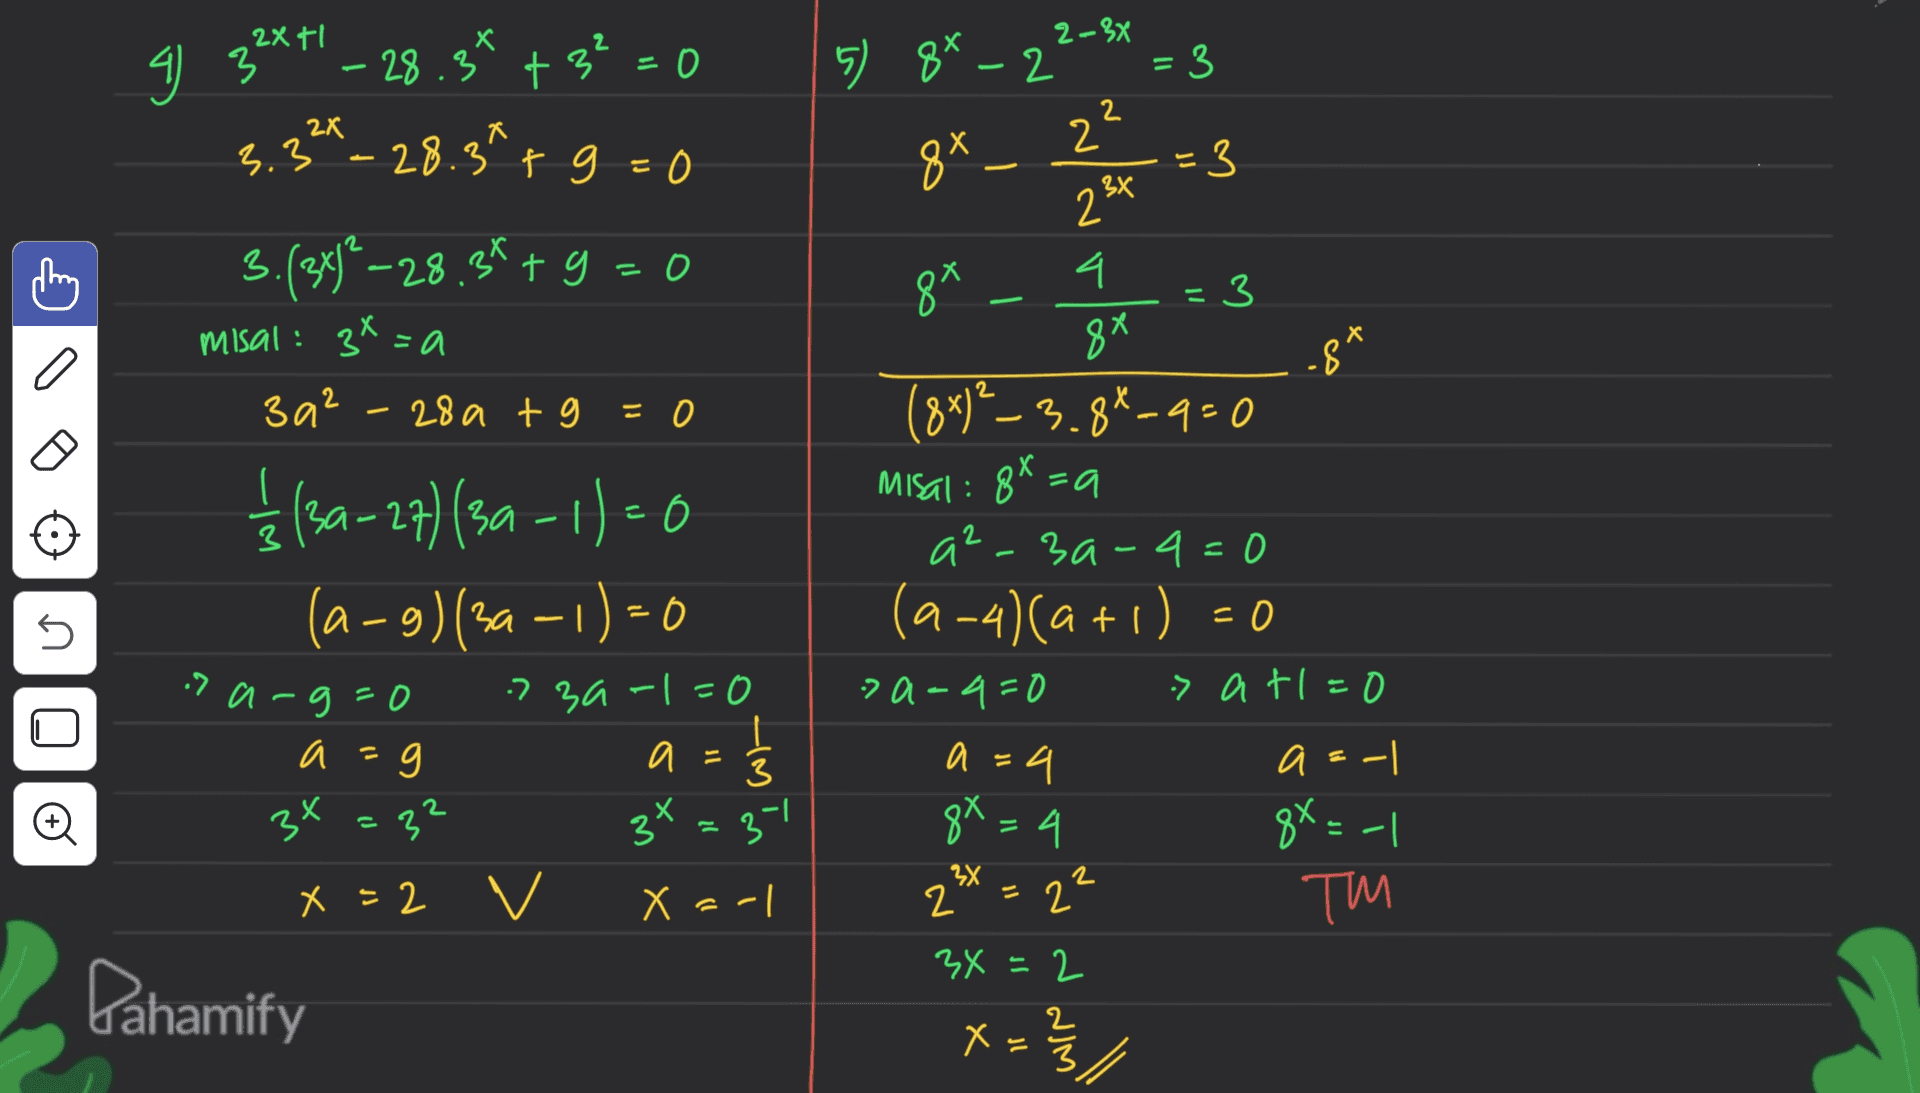 4) 3^{2x+1} - 28 . 3^x + 3^2 = 0
3.3^{2x} - 28.3^x + 9 = 0
3.(3^x)^2 - 28.3^x + 9 = 0
misal : 3^x = a
3a^2 - 28a + 9 = 0
1/3 (3a-27)(3a-1) = 0
(a-9)(3a-1) = 0
:> a-9 = 0 :> 3a-1 = 0
a = 9 a = 1/3
3^x = 3^2 3^x = 3^{-1}
x = 2 V x = -1
5) 8^x - 2^{2-3x} = 3
8^x - 2^2/2^{3x} = 3
8^x - 4/8^x = 3
.8^x
(8^x)^2 - 3.8^x - 4 = 0
misal : 8^x = a
a^2 - 3a - 4 = 0
(a-4)(a+1) = 0
:> a-4 = 0 :> a+1 = 0
a = 4 a = -1
8^x = 4 8^x = -1
2^{3x} = 2^2 TM
3x = 2
x = 2/3 //
Pahamify